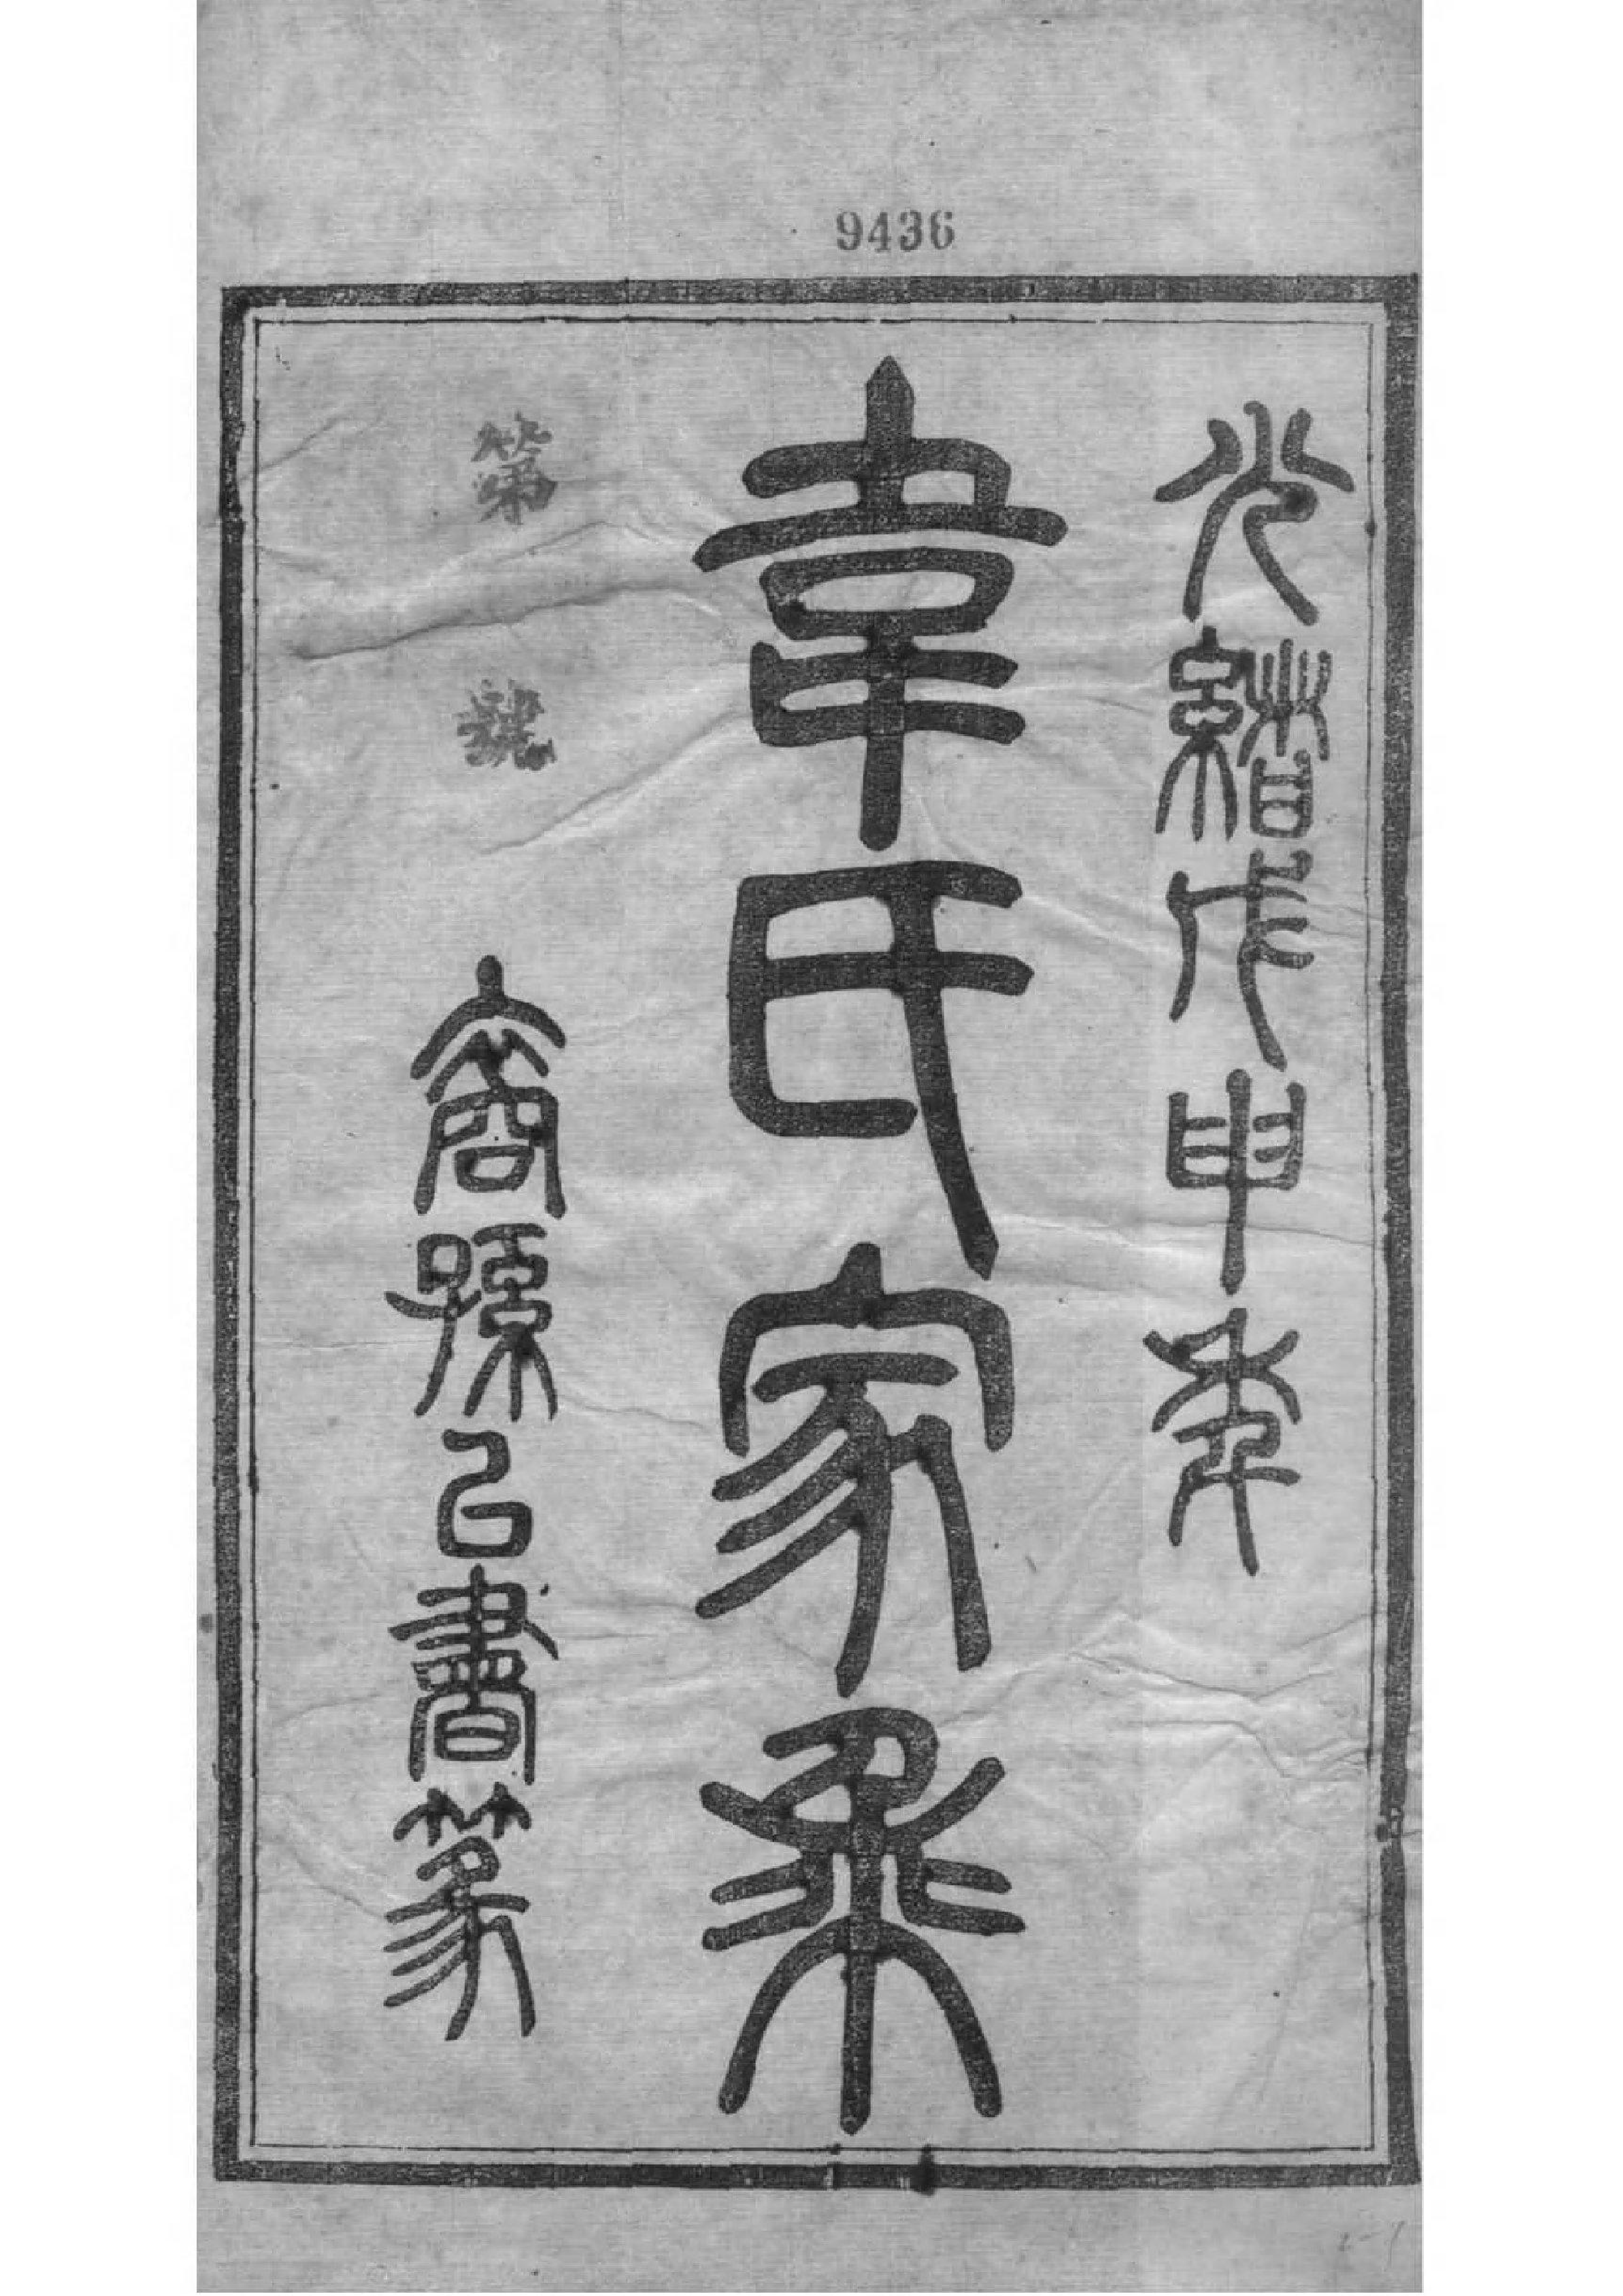 9436
光緒戊申年
韋氏家乘
第 號
裔孫以書篆